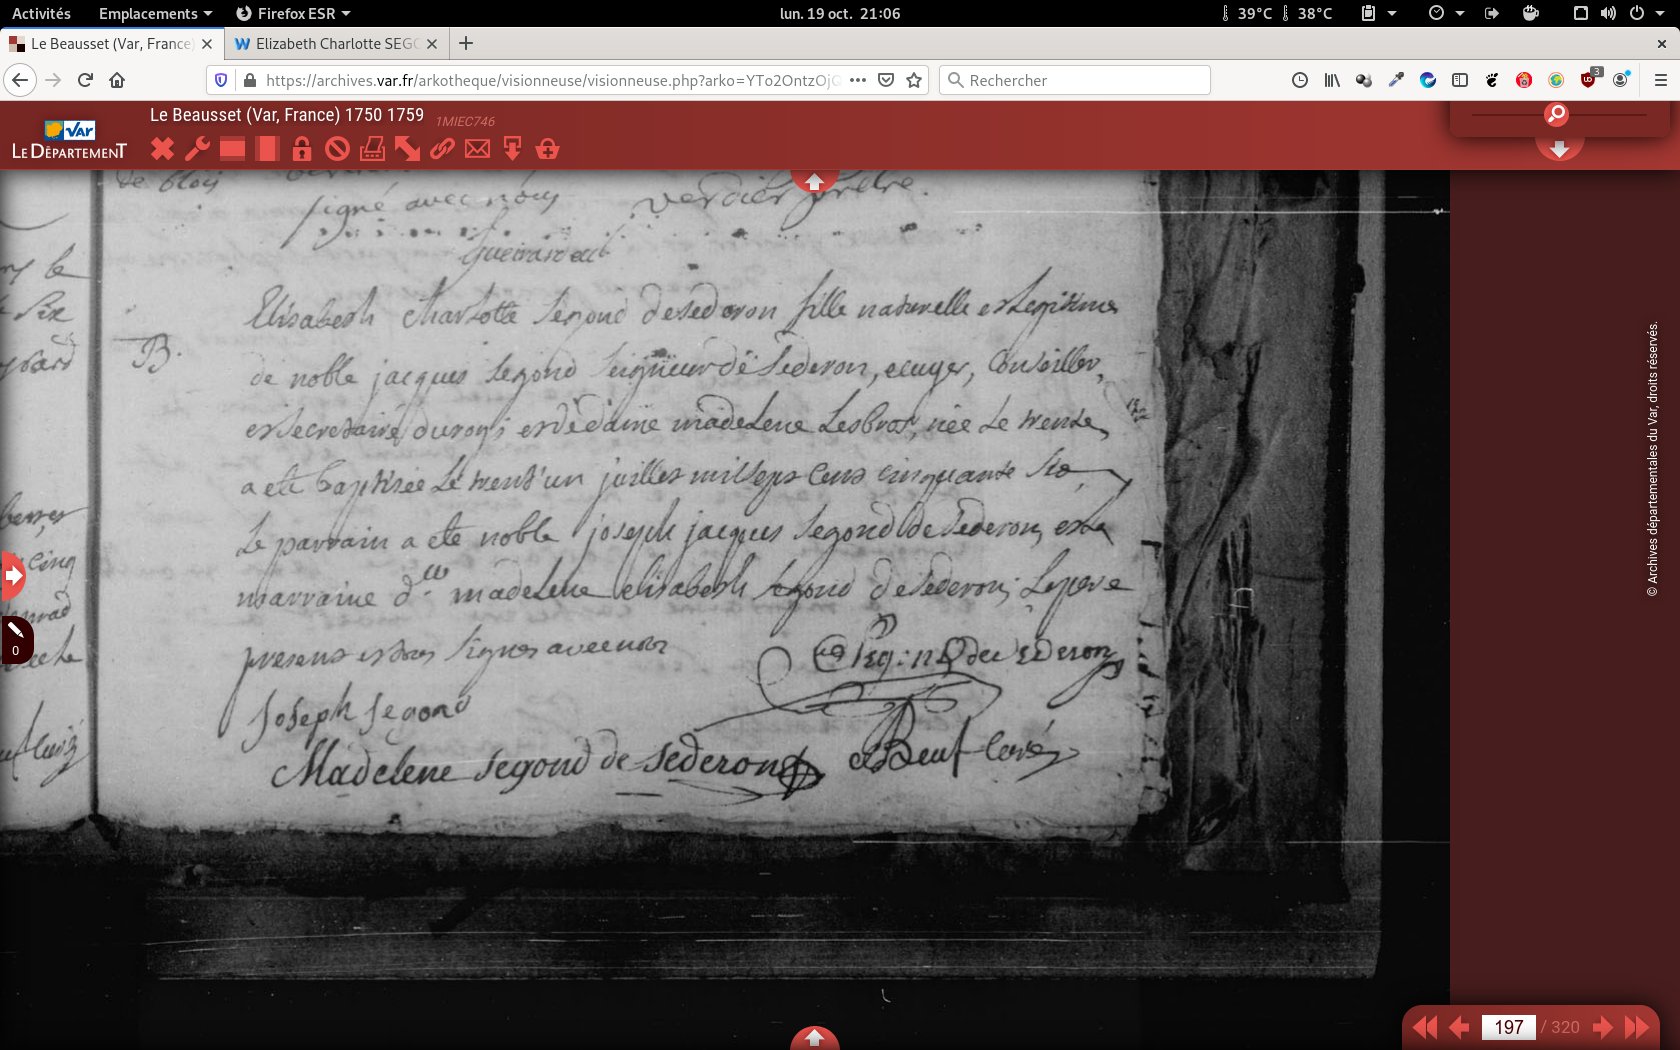 Activités Emplacements Firefox ESR lun. 19 oct. 21:06 39°C 38°C
Le Beausset (Var, France) Elizabeth Charlotte SEGO
https://archives.var.fr/arkotheque/visionneuse/visionneuse.php?arko=YTo2OntzOjG Rechercher 3
Le Beausset (Var, France) 1750 1759 1MIEC746
Var
LE DÉPARTEMENT
de blois
signé avec nous verdier prêtre.
B.
Elisabeth Charlotte Segond de Sederon fille naturelle et legitime
de noble jacques Segond Seigneur de Sederon, ecuyer, Conseiller,
et secretaire du roy; et de dame madelene Lesbros, née le trente,
a ete baptisée le trent'un juillet mil sept cens cinquante
le parrain a ete noble joseph jacques Segond de Sederon, et la
marraine dlle madelene elisabeth Segond de Sederon; le pere
present et tous signes avec nous
de sederon
Joseph Segond
Madelene Segond de sederon curé
cinq
0
© Archives départementales du Var, droits réservés.
197 / 320